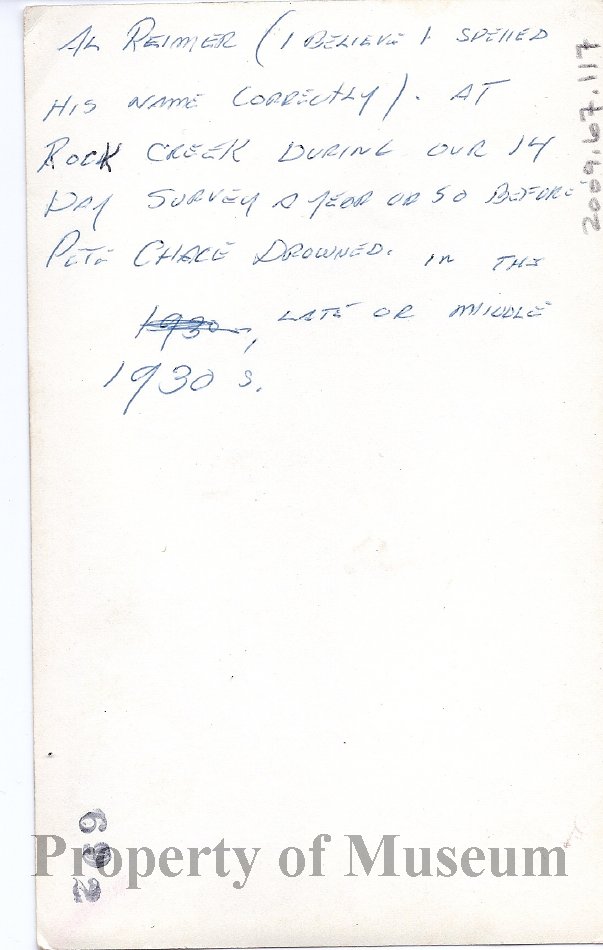 AL REIMER (I BELIEVE I SPELLED
HIS NAME CORRECTLY). AT
ROCK CREEK DURING OUR 14
DAY SURVEY A YEAR OR SO BEFORE
PETE CHACE DROWNED. IN THE
1930, LATE OR MIDDLE
1930s.
2009.67.117
Property of Museum